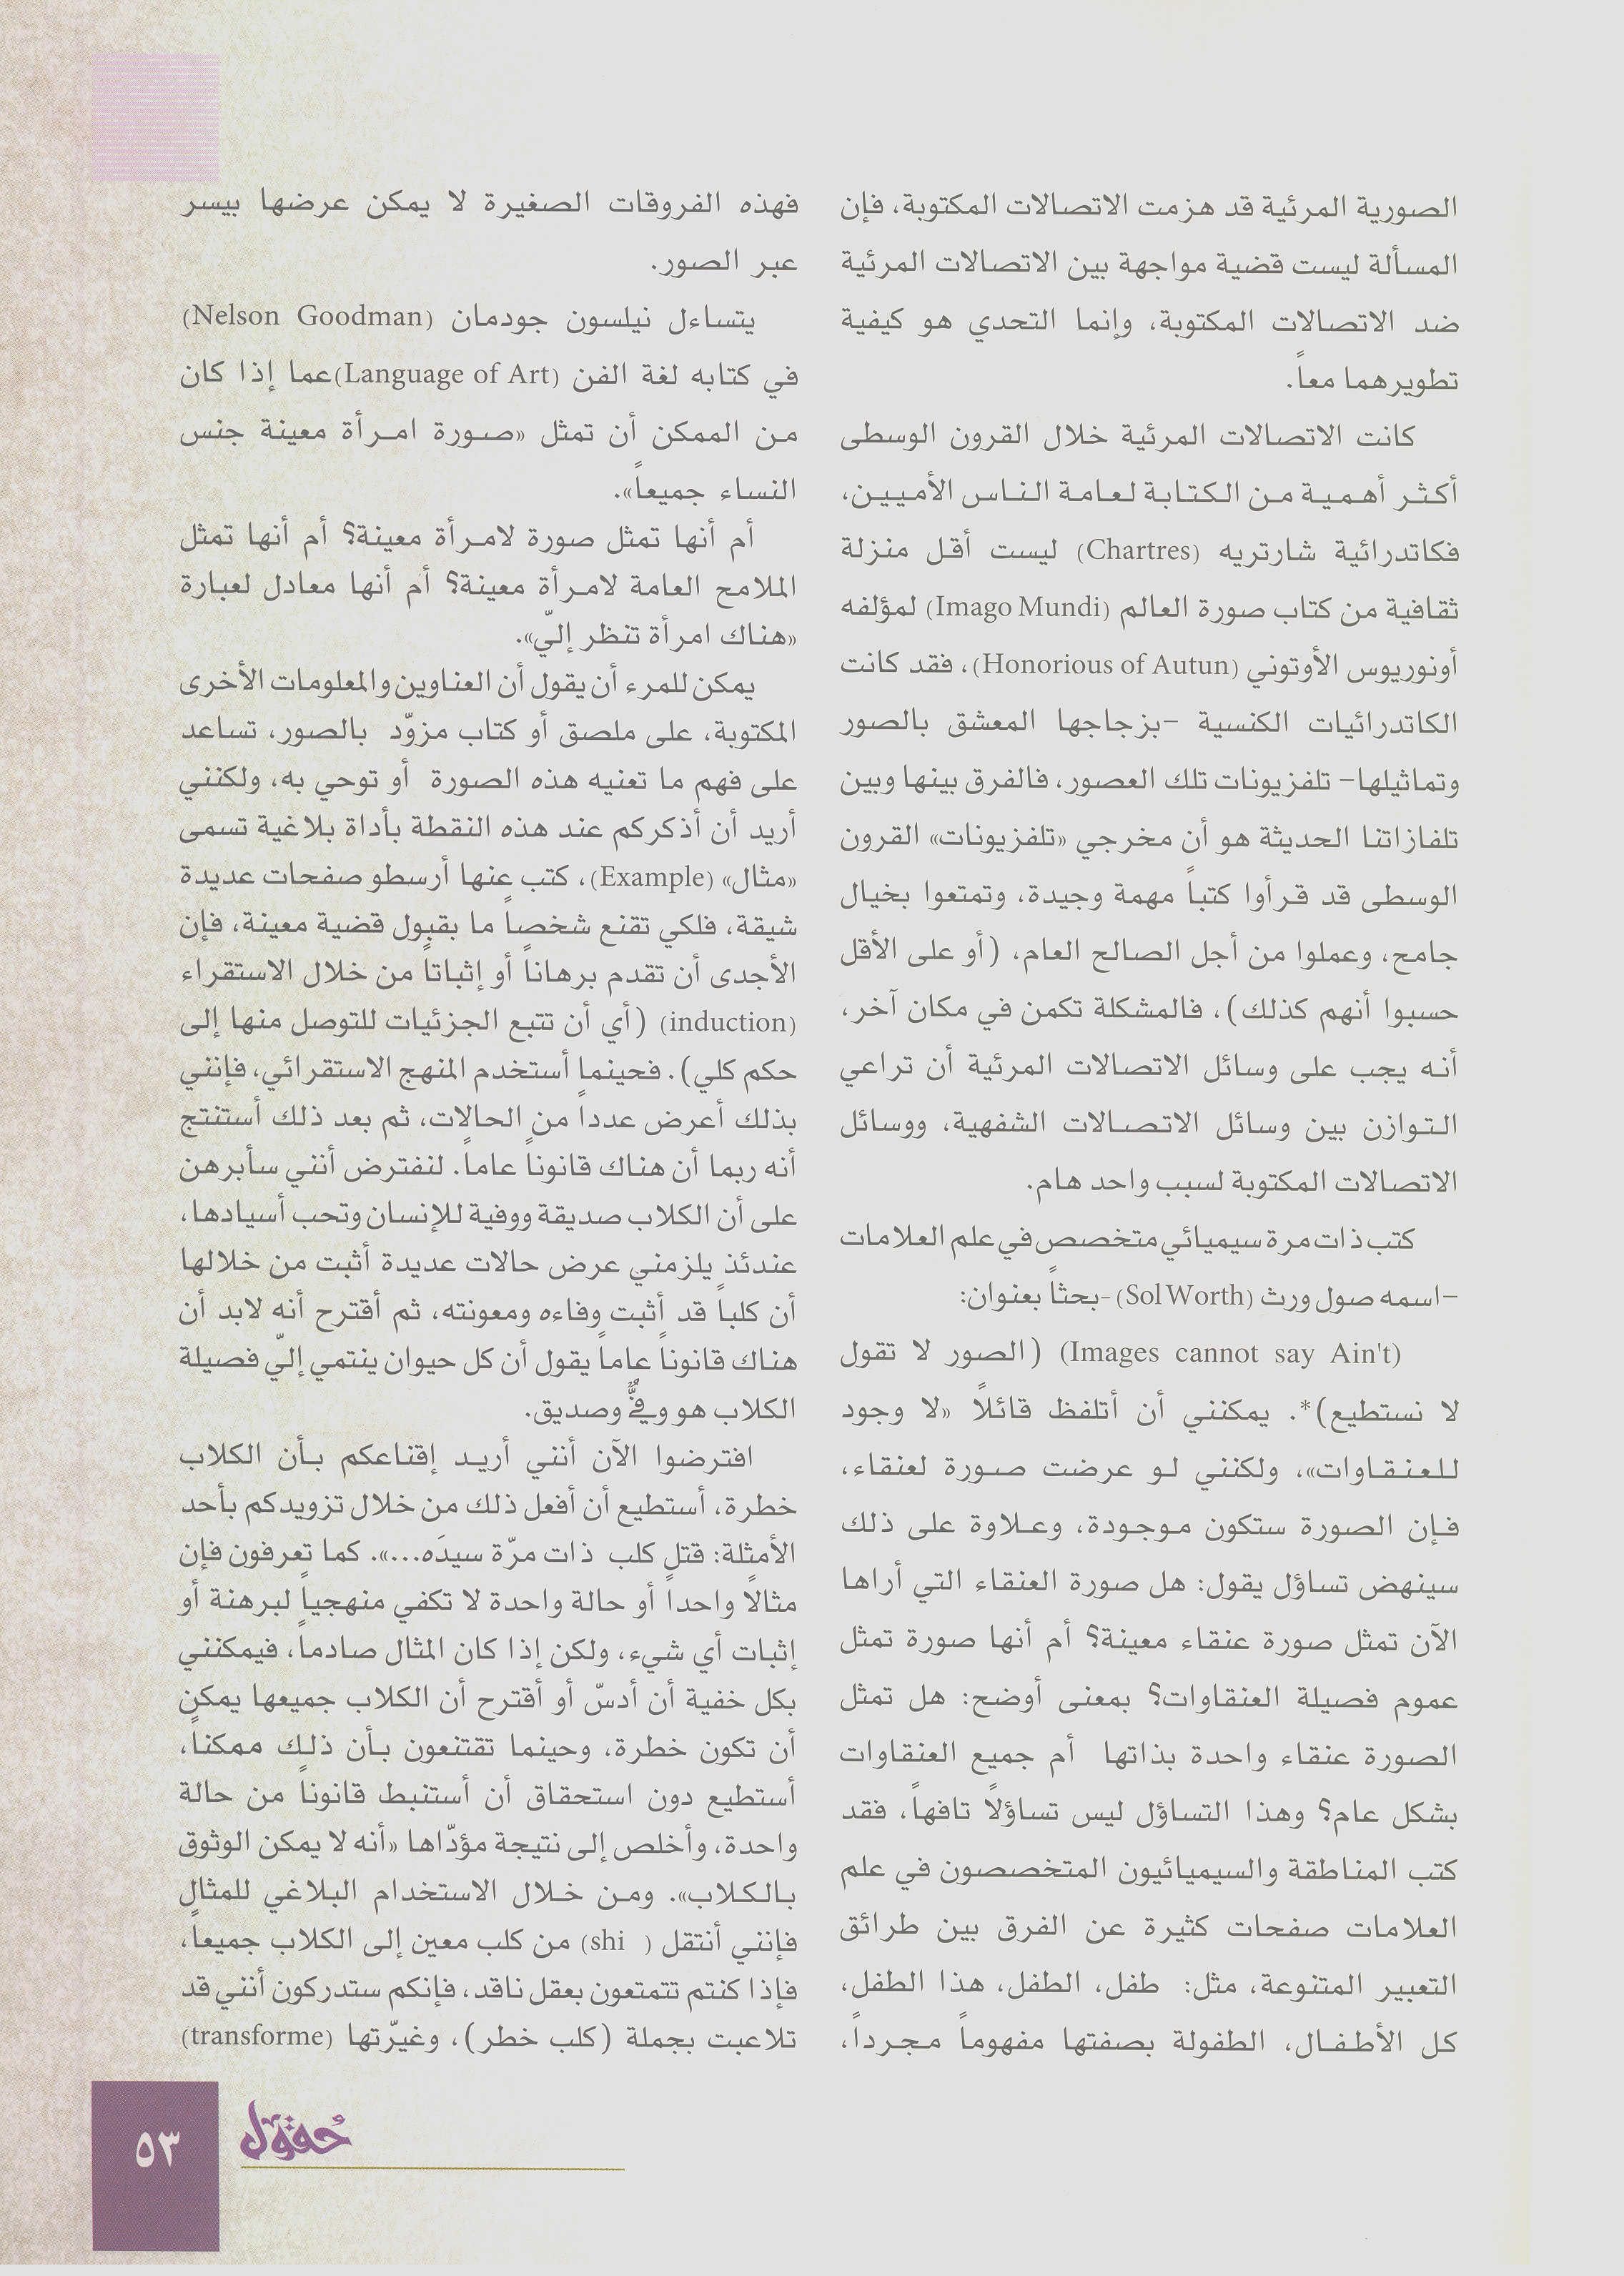 الصورية المرئية قد هزمت الاتصالات المكتوبة، فإن
المسألة ليست قضية مواجهة بين الاتصالات المرئية
ضد الاتصالات المكتوبة، وإنما التحدي هو كيفية
تطويرهما معاً.
كانت الاتصالات المرئية خلال القرون الوسطى
أكثر أهمية من الكتابة لعامة الناس الأميين،
فكاتدرائية شارتريه (Chartres) ليست أقل منزلة
ثقافية من كتاب صورة العالم (Imago Mundi) لمؤلفه
أونوريوس الأوتوني (Honorious of Autun)، فقد كانت
الكاتدرائيات الكنسية -بزجاجها المعشق بالصور
وتماثيلها- تلفزيونات تلك العصور، فالفرق بينها وبين
تلفازاتنا الحديثة هو أن مخرجي «تلفزيونات» القرون
الوسطى قد قرأوا كتباً مهمة وجيدة، وتمتعوا بخيال
جامح، وعملوا من أجل الصالح العام، (أو على الأقل
حسبوا أنهم كذلك)، فالمشكلة تكمن في مكان آخر،
أنه يجب على وسائل الاتصالات المرئية أن تراعي
التوازن بين وسائل الاتصالات الشفهية، ووسائل
الاتصالات المكتوبة لسبب واحد هام.
كتب ذات مرة سيميائي متخصص في علم العلامات
-اسمه صول ورث (Sol Worth) -بحثاً بعنوان:
(Images cannot say Ain't) (الصور لا تقول
لا نستطيع)*. يمكنني أن أتلفظ قائلاً «لا وجود
للعنقاوات»، ولكنني لو عرضت صورة لعنقاء،
فإن الصورة ستكون موجودة، وعلاوة على ذلك
سينهض تساؤل يقول: هل صورة العنقاء التي أراها
الآن تمثل صورة عنقاء معينة؟ أم أنها صورة تمثل
عموم فصيلة العنقاوات؟ بمعنى أوضح: هل تمثل
الصورة عنقاء واحدة بذاتها أم جميع العنقاوات
بشكل عام؟ وهذا التساؤل ليس تساؤلاً تافهاً، فقد
كتب المناطقة والسيميائيون المتخصصون في علم
العلامات صفحات كثيرة عن الفرق بين طرائق
التعبير المتنوعة، مثل: طفل، الطفل، هذا الطفل،
كل الأطفال، الطفولة بصفتها مفهوماً مجرداً،
فهذه الفروقات الصغيرة لا يمكن عرضها بيسر
عبر الصور.
يتساءل نيلسون جودمان (Nelson Goodman)
في كتابه لغة الفن (Language of Art)عما إذا كان
من الممكن أن تمثل «صورة امرأة معينة جنس
النساء جميعاً».
أم أنها تمثل صورة لامرأة معينة؟ أم أنها تمثل
الملامح العامة لامرأة معينة؟ أم أنها معادل لعبارة
«هناك امرأة تنظر إليّ».
يمكن للمرء أن يقول أن العناوين والمعلومات الأخرى
المكتوبة، على ملصق أو كتاب مزوّد بالصور، تساعد
على فهم ما تعنيه هذه الصورة أو توحي به، ولكنني
أريد أن أذكركم عند هذه النقطة بأداة بلاغية تسمى
«مثال» (Example)، كتب عنها أرسطو صفحات عديدة
شيقة، فلكي تقنع شخصاً ما بقبول قضية معينة، فإن
الأجدى أن تقدم برهاناً أو إثباتاً من خلال الاستقراء
(induction) (أي أن تتبع الجزئيات للتوصل منها إلى
حكم كلي). فحينما أستخدم المنهج الاستقرائي، فإنني
بذلك أعرض عدداً من الحالات، ثم بعد ذلك أستنتج
أنه ربما أن هناك قانوناً عاماً. لنفترض أنني سأبرهن
على أن الكلاب صديقة ووفية للإنسان وتحب أسيادها،
عندئذ يلزمني عرض حالات عديدة أثبت من خلالها
أن كلباً قد أثبت وفاءه ومعونته، ثم أقترح أنه لابد أن
هناك قانوناً عاماً يقول أن كل حيوان ينتمي إليّ فصيلة
الكلاب هو وفيٌّ وصديق.
افترضوا الآن أنني أريد إقناعكم بأن الكلاب
خطرة، أستطيع أن أفعل ذلك من خلال تزويدكم بأحد
الأمثلة: قتل كلب ذات مرّة سيدَه...». كما تعرفون فإن
مثالاً واحداً أو حالة واحدة لا تكفي منهجياً لبرهنة أو
إثبات أي شيء، ولكن إذا كان المثال صادماً، فيمكنني
بكل خفية أن أدسّ أو أقترح أن الكلاب جميعها يمكن
أن تكون خطرة، وحينما تقتنعون بأن ذلك ممكناً،
أستطيع دون استحقاق أن أستنبط قانوناً من حالة
واحدة، وأخلص إلى نتيجة مؤدّاها «أنه لا يمكن الوثوق
بالكلاب». ومن خلال الاستخدام البلاغي للمثال
فإنني أنتقل (shi ) من كلب معين إلى الكلاب جميعاً،
فإذا كنتم تتمتعون بعقل ناقد، فإنكم ستدركون أنني قد
تلاعبت بجملة (كلب خطر)، وغيّرتها (transforme)
حُقول
٥٣